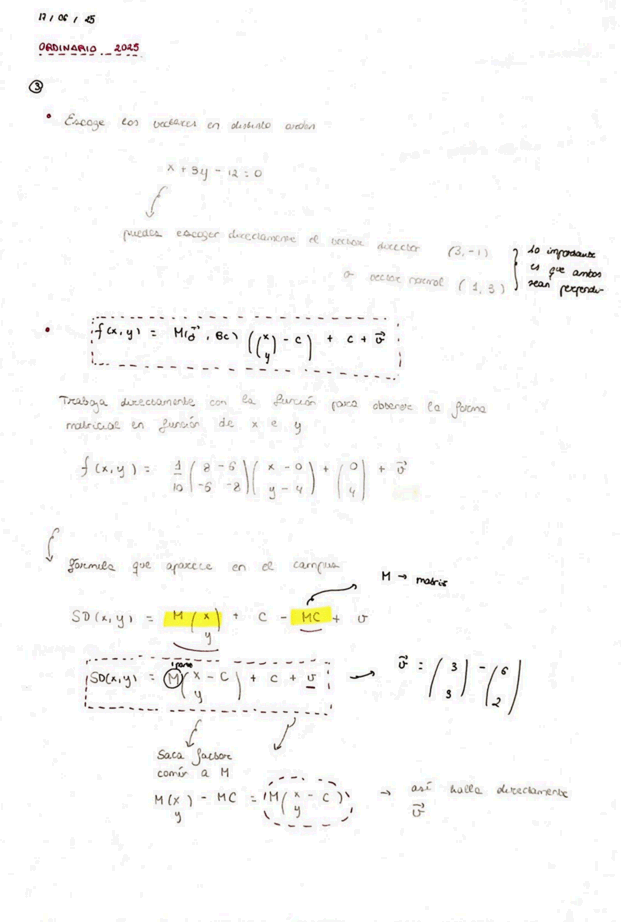 17 / 06 / 25
ORDINARIO 2025
3
• Escoge los vectores en distinto orden
x + 3y - 12 = 0
puedes escoger directamente el vector director (3,-1)
o vector normal (1, 3)
lo importante
es que ambos
sean perpendi-
• f(x,y) = M( , Bc) ((x y) - C) + C + v⃗
Trabaja directamente con la función para obtener la forma
matricial en función de x e y
f(x,y) = 1/10 (8 -6 -6 -8) (x - 0 y - 4) + (0 4) + v⃗
fórmula que aparece en el campus
M → matriz
SD(x,y) = M (x y) + C - MC + v
SD(x,y) = M (x y - C) + C + v → v⃗ = (3 3) - (6 2)
Saca factor
común a M
M(x y) - MC = M(x y - C) → así halla directamente
v⃗